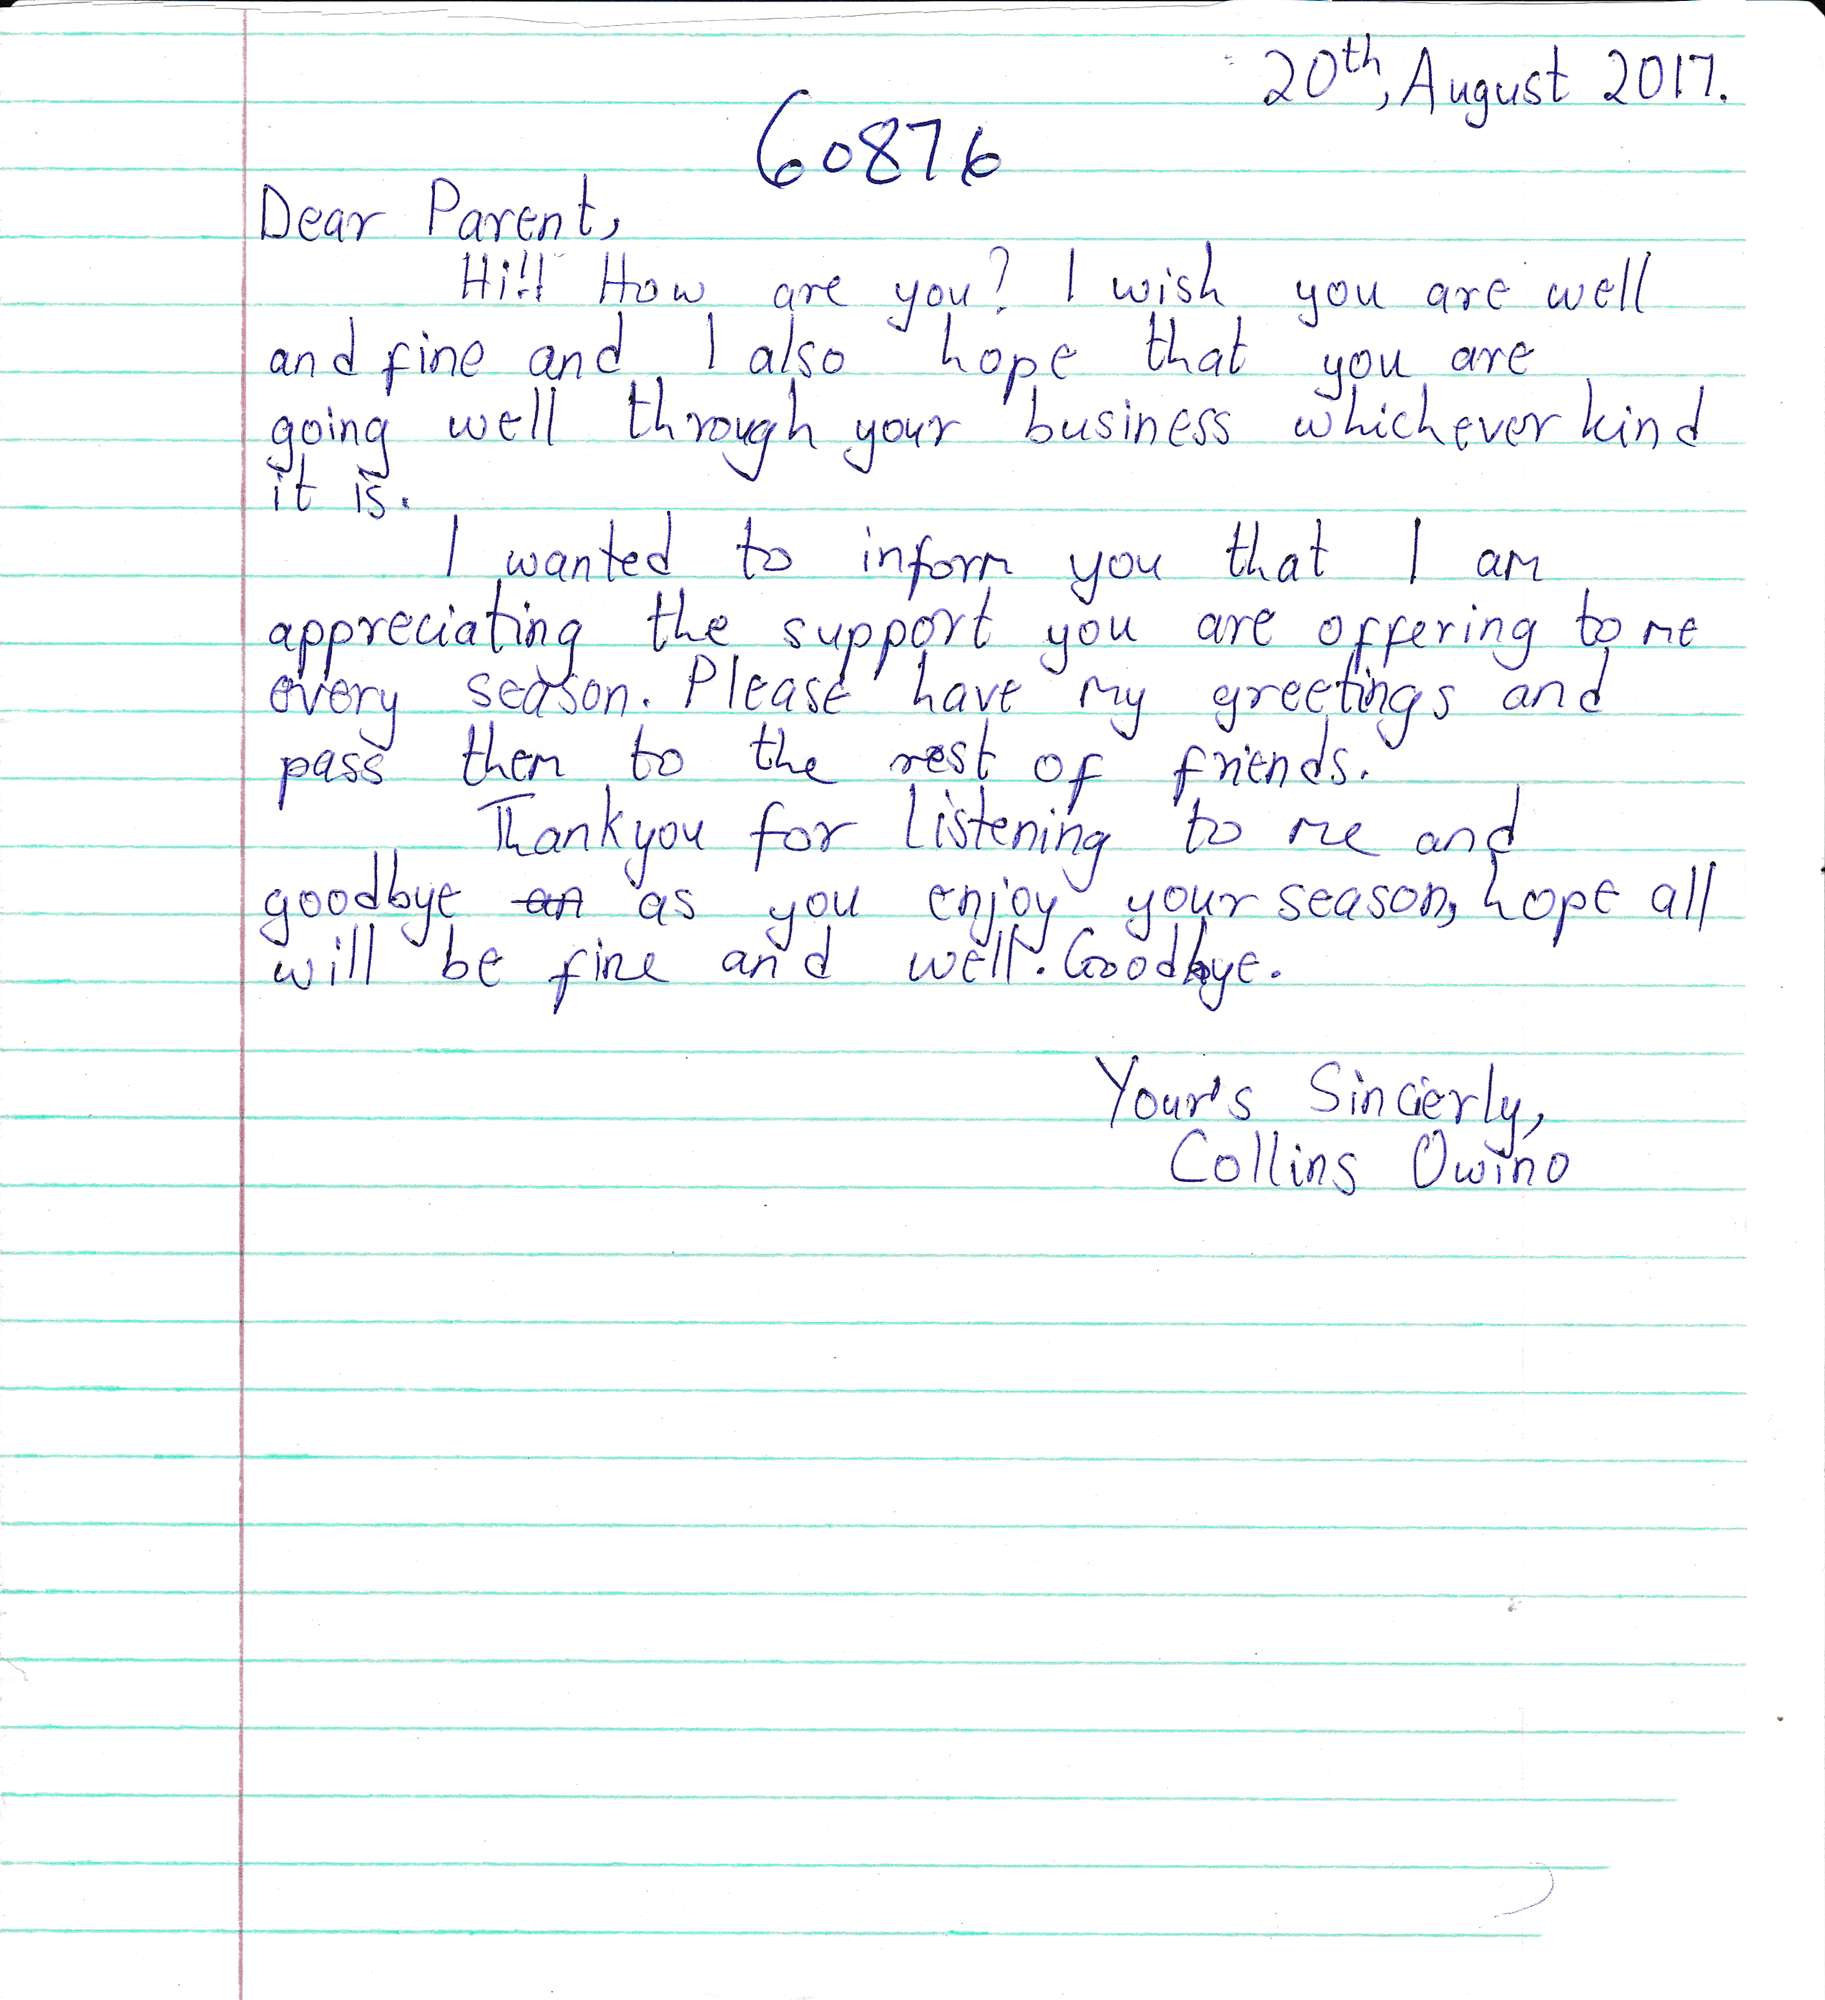 20th, August 2017.
60876
Dear Parent,
Hi!! How are you? I wish you are well
and fine and I also hope that you are
going well through your business whichever kind
it is.
I wanted to inform you that I am
appreciating the support you are offering to me
every season. Please have my greetings and
pass them to the rest of friends.
Thankyou for listening to me and
goodbye an as you enjoy your season, hope all
will be fine and well. Goodbye.
Your's Sincierly,
Collins Owino